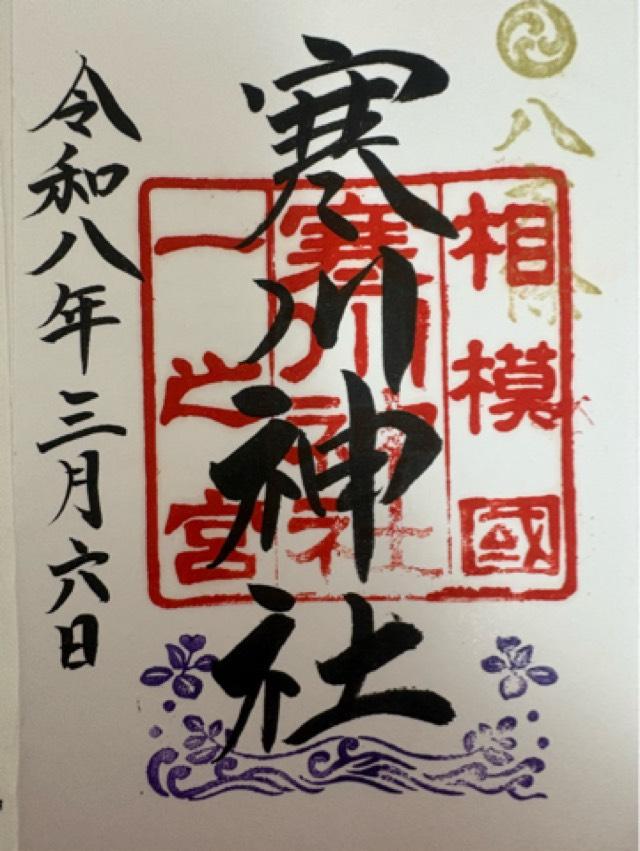 八方除
相模國
寒川神社
一之宮
寒川神社
令和八年三月六日